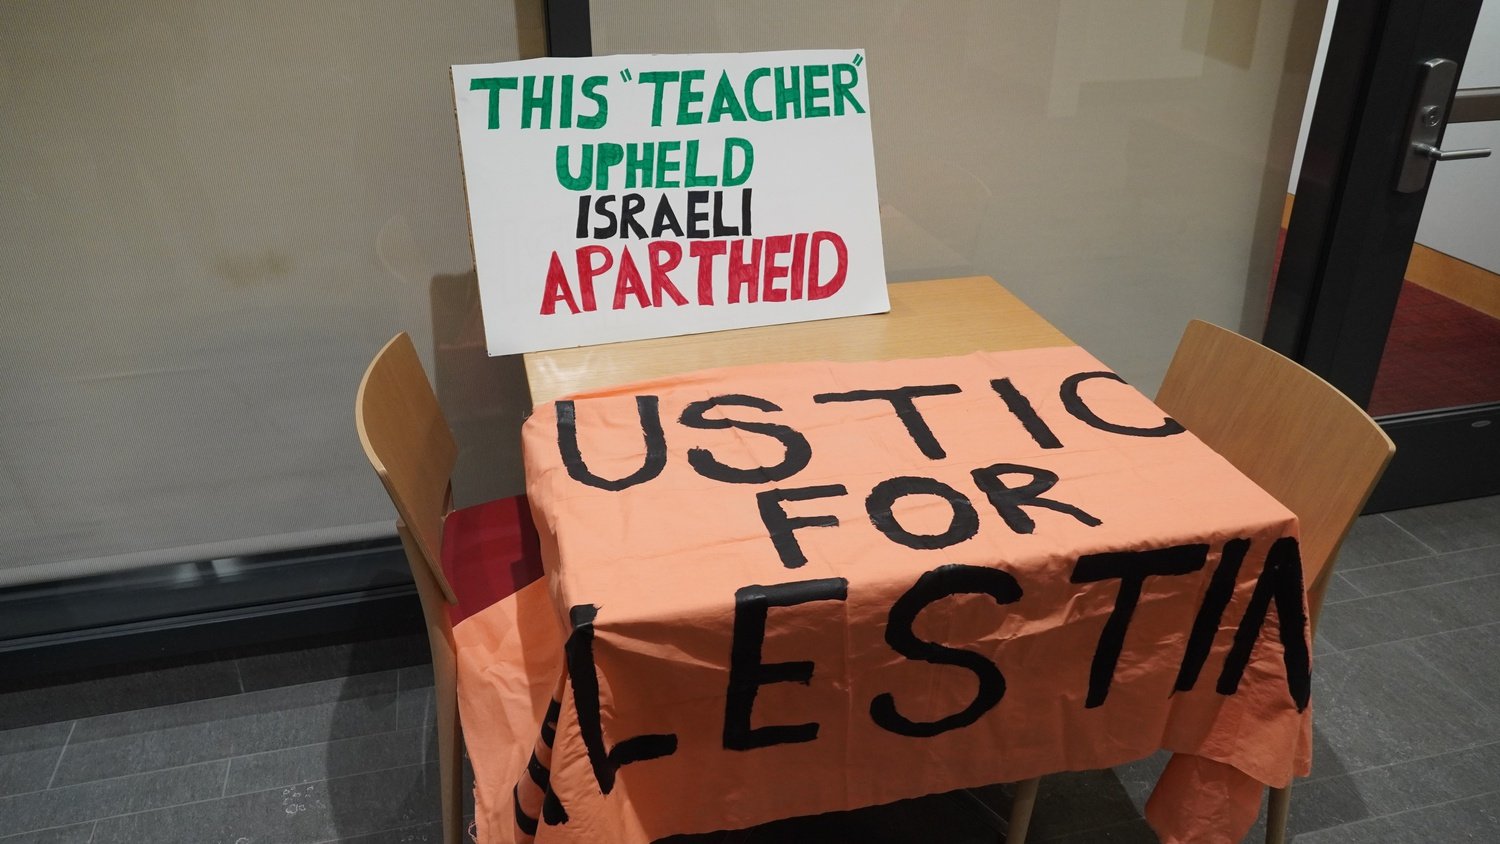 THIS "TEACHER"
UPHELD
ISRAELI
APARTHEID
USTIC
FOR
LESTIN